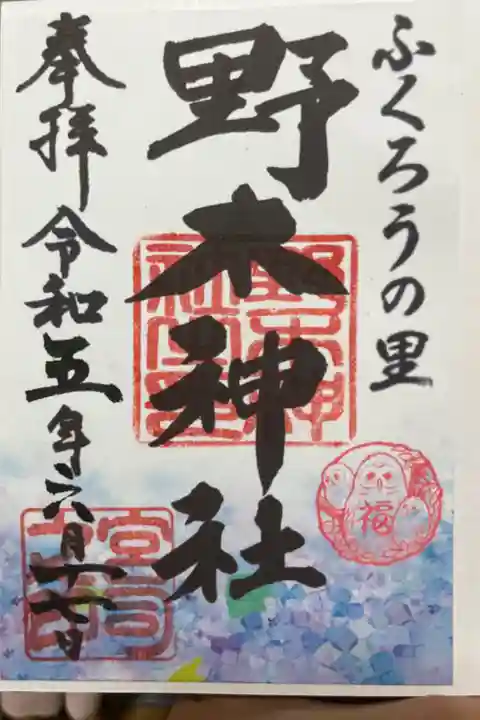 ふくろうの里
野木神社
奉拝 令和五年六月十七日
福